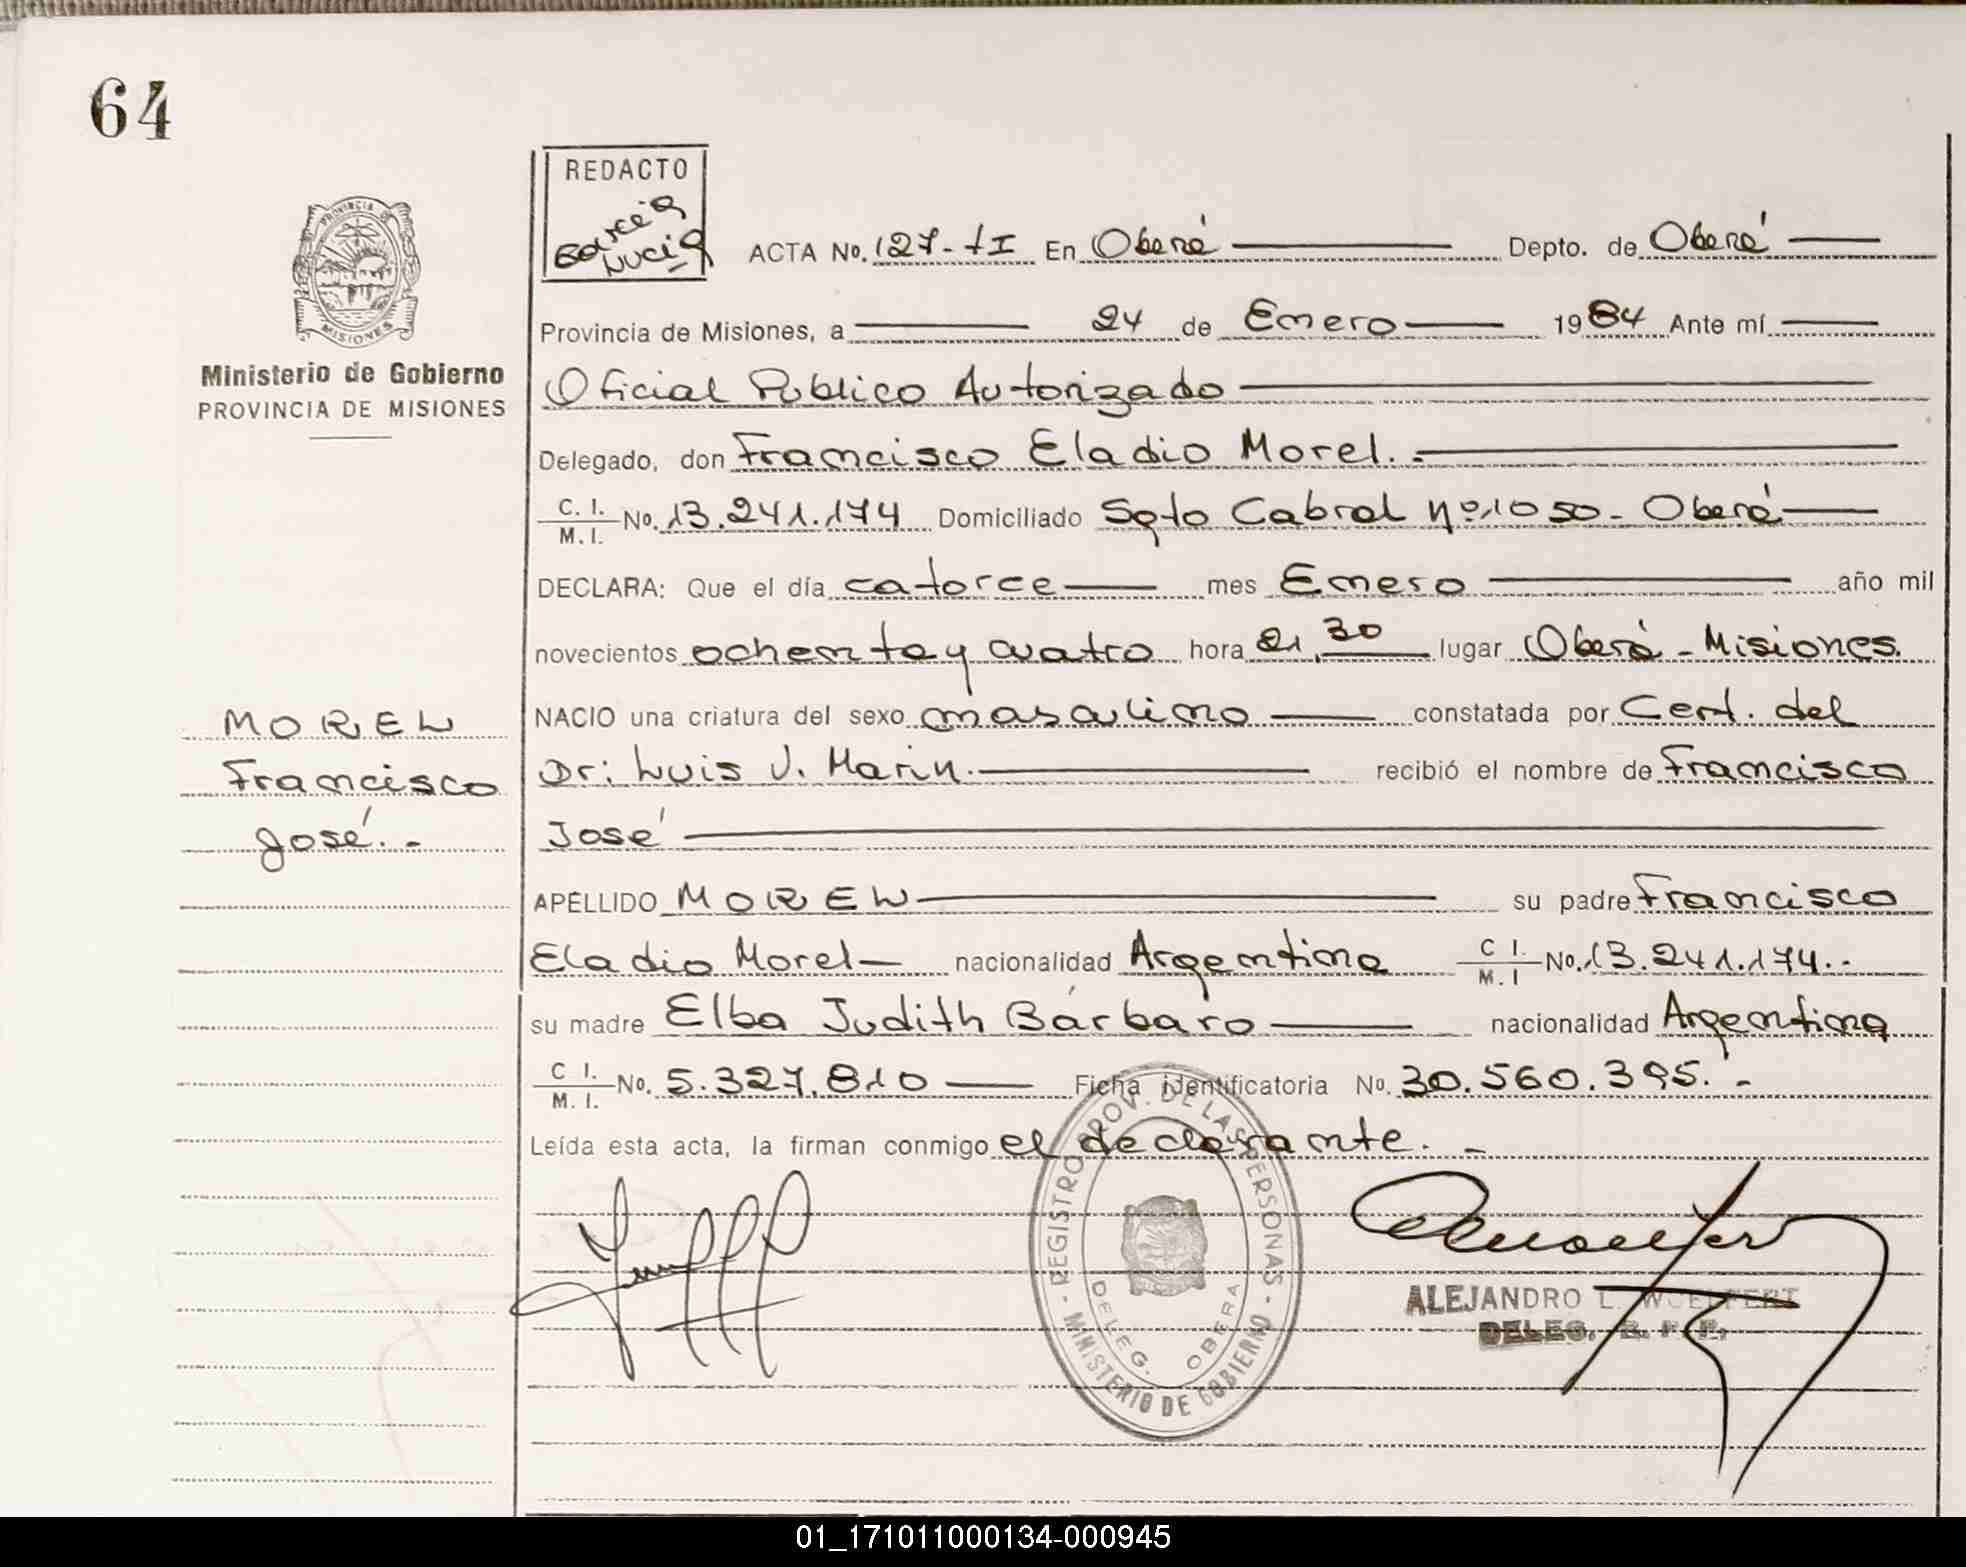 64
REDACTO
Garcia
Lucia
ACTA No. 127-tI En Oberá Depto. de Oberá
PROVINCIA
MISIONES
Ministerio de Gobierno
PROVINCIA DE MISIONES
Provincia de Misiones, a 24 de Enero 1984 Ante mí
Oficial Publico Autorizado
Delegado, don Francisco Eladio Morel.-
C. I. / M. I. No. 13.241.174 Domiciliado Sgto Cabral Nº 1050 - Oberá
DECLARA: Que el día catorce mes Enero año mil
novecientos ochenta y cuatro hora 21,30 lugar Oberá - Misiones.
NACIO una criatura del sexo masculino constatada por Cert. del
Dr: Luis J. Marin. recibió el nombre de Francisco
José
MOREL
Francisco
José.-
APELLIDO MOREL su padre Francisco
Eladio Morel nacionalidad Argentina C I. / M. I No. 13.241.174.-
su madre Elba Judith Bárbaro nacionalidad Argentina
C I. / M. I. No. 5.327.810 Ficha identificatoria No. 30.560.395.-
Leída esta acta, la firman conmigo el declarante.-
REGISTRO PROV. DE LAS PERSONAS - MINISTERIO DE GOBIERNO -
DELEG. OBERA
ALEJANDRO L. WOELFERT
DELEG. R. P. P.
01_171011000134-000945